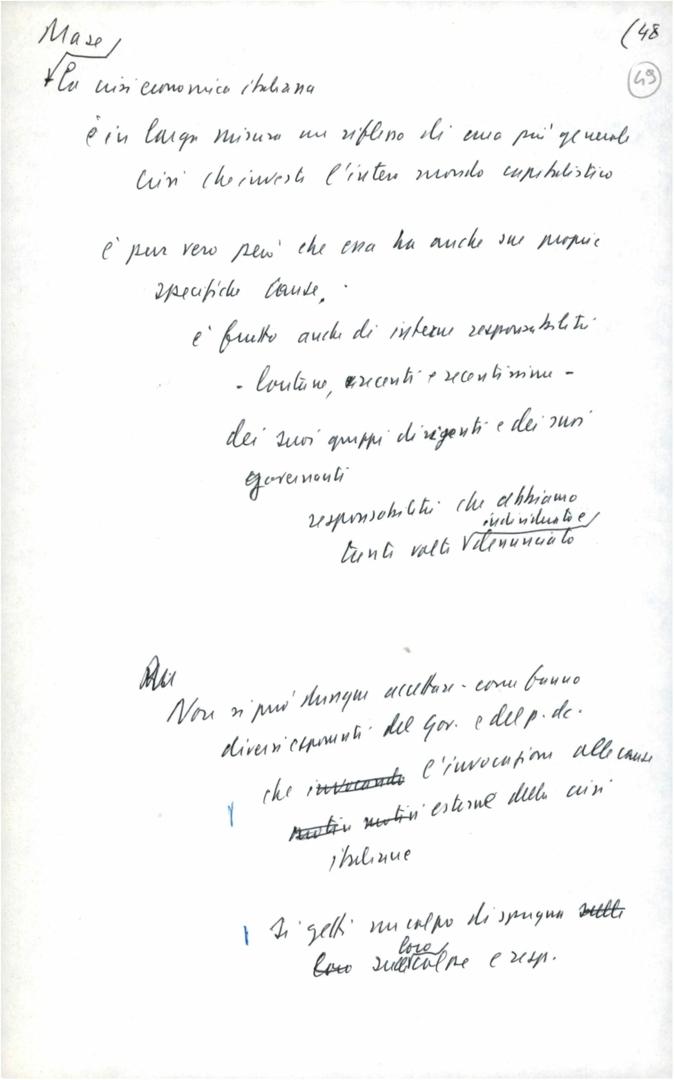 Ma se
(48
49
la crisi economica italiana
è in larga misura un riflesso di una più generale
crisi che investe l'intero mondo capitalistico
è pur vero però che essa ha anche sue proprie
specifiche cause,
è frutto anche di interne responsabilità
- lontane, recenti e recentissime -
dei suoi gruppi dirigenti e dei suoi
governanti
responsabilità che abbiamo
individuato e
tante volte denunciato
Non si può dunque accettare - come fanno
diversi esponenti del Gov. e del p. dc.
che invocando l'invocazione alle cause
motivi motivi esterne della crisi
italiana
Si getti un colpo di spugna sulle
loro
loro sulle colpe e resp.